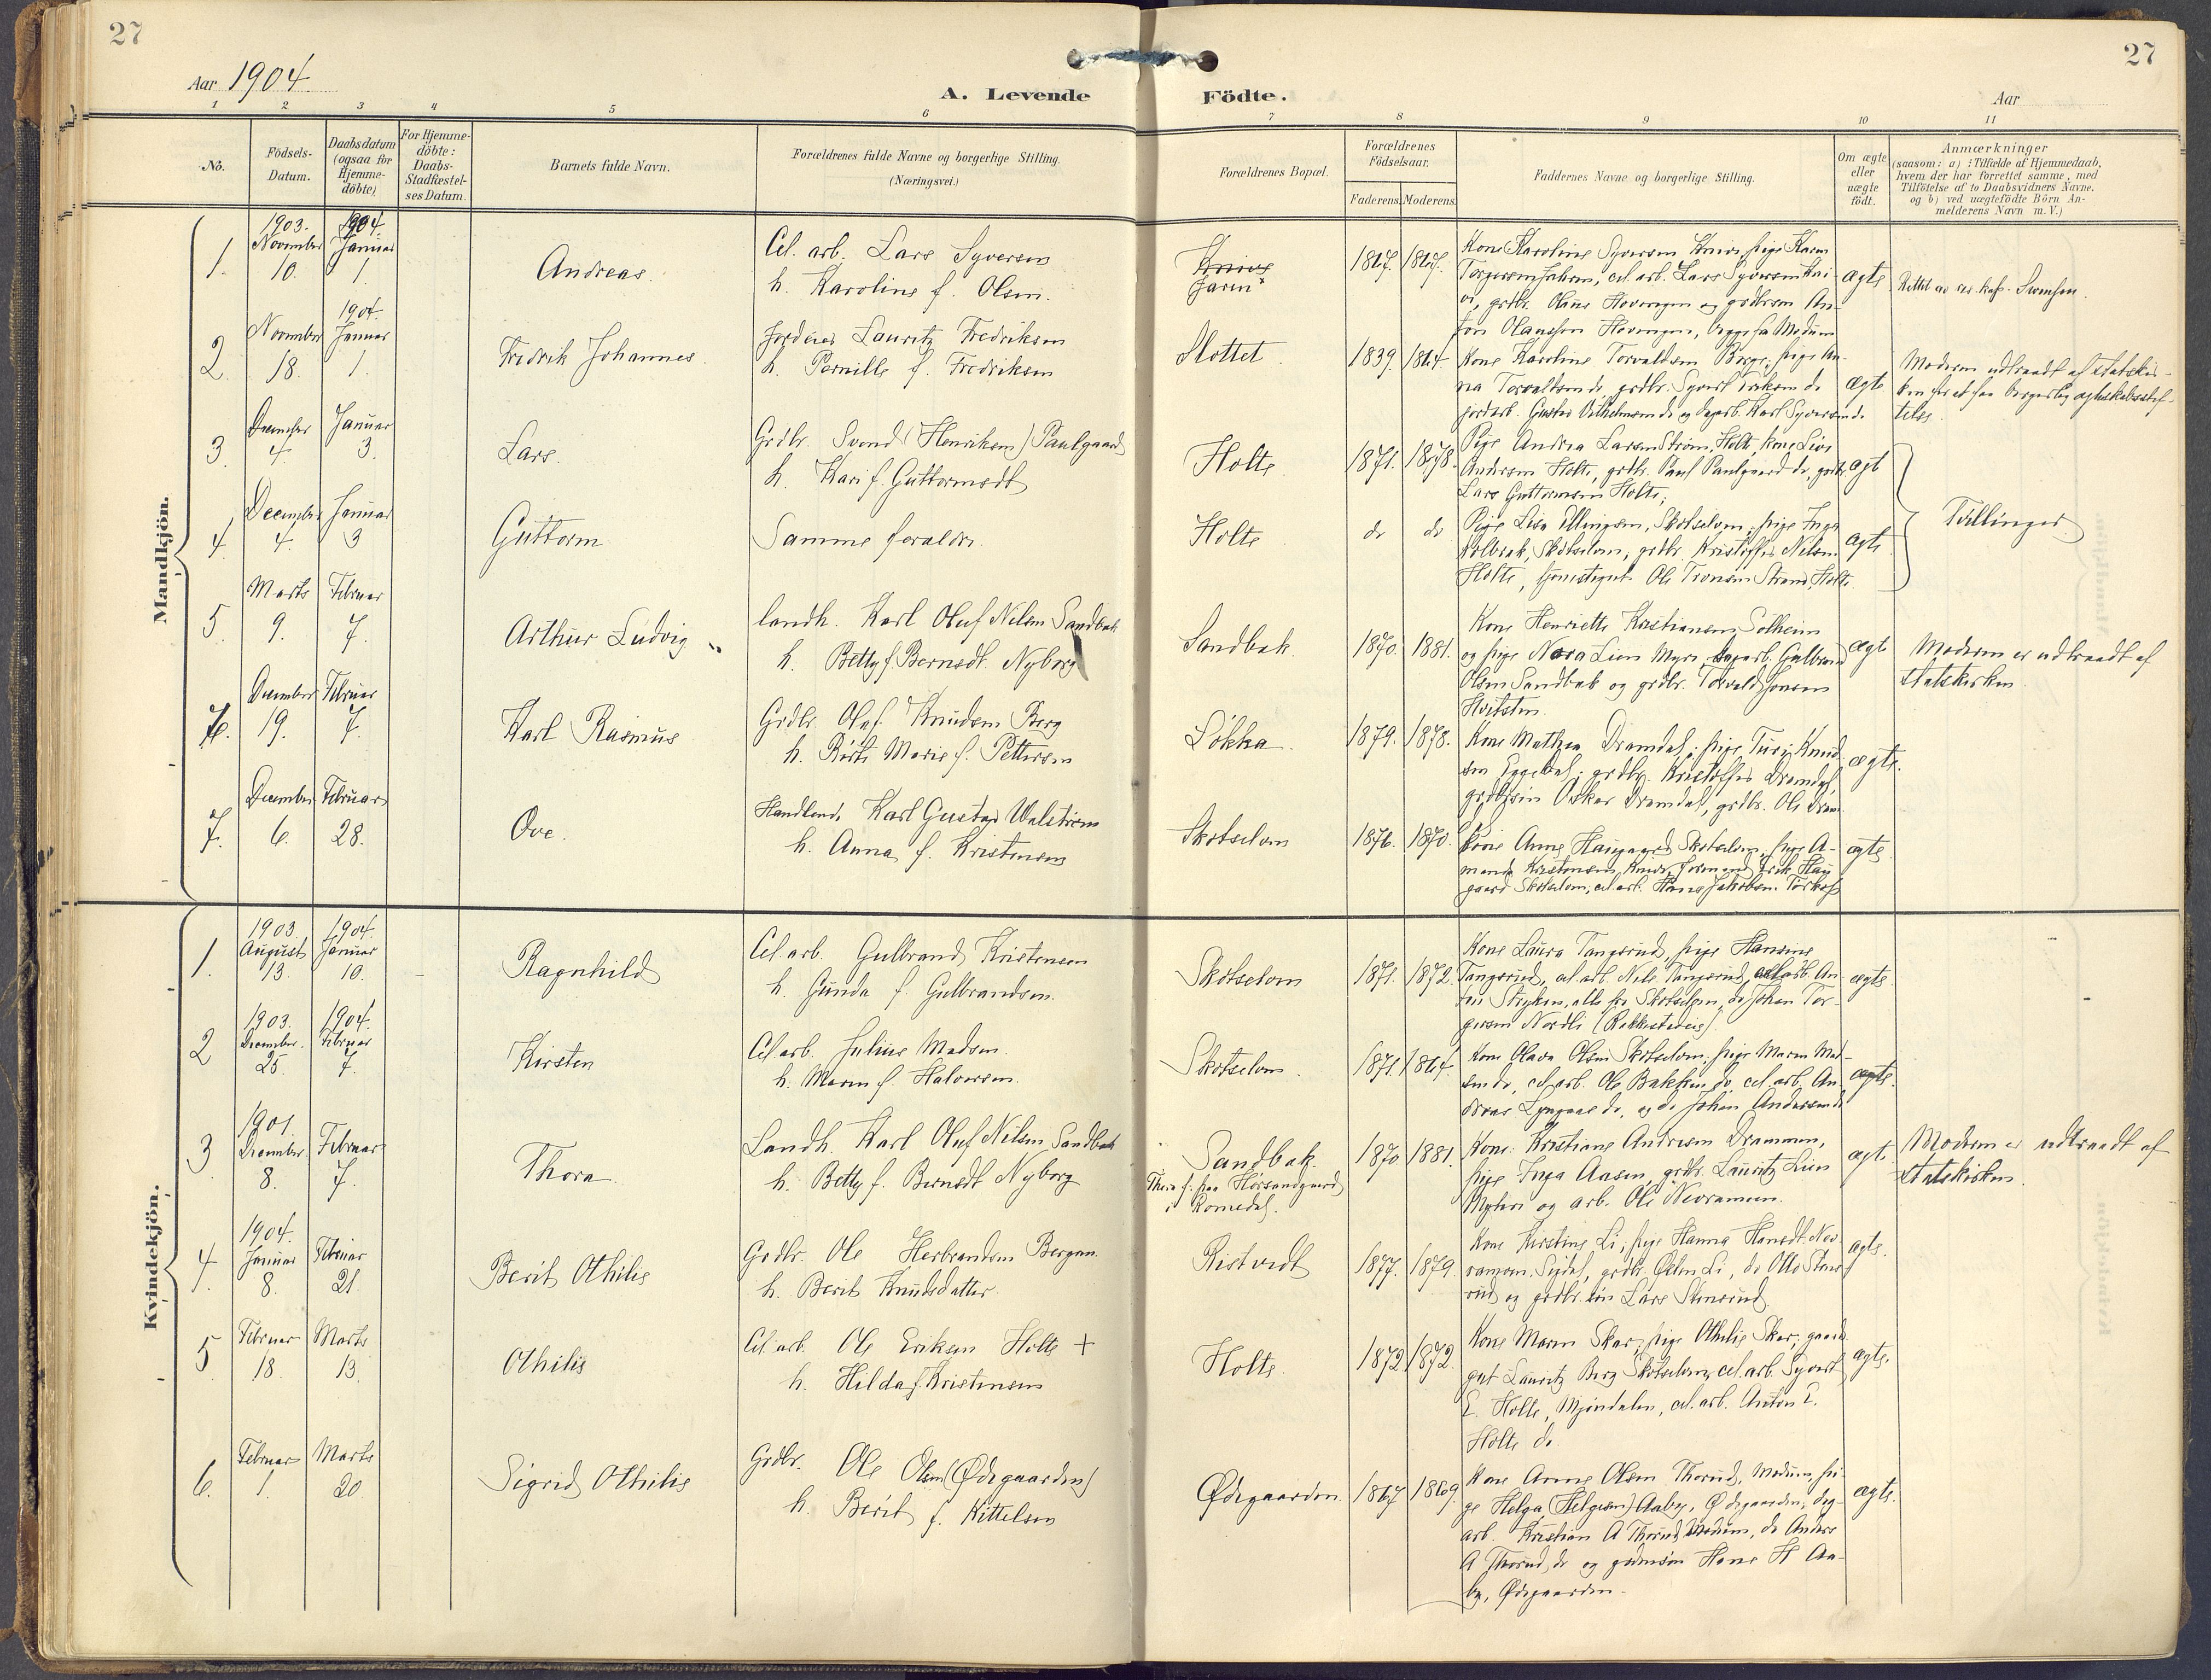 27
27
Aar 1904.
A. Levende Födte.
Aar
1 2 3 4 5 6 7 8 9 10 11
No.
Födsels-Datum.
Daabsdatum (ogsaa for Hjemme-döbte)
For Hjemme-döbte: Daabs-Stadfæstel-ses Datum.
Barnets fulde Navn.
Forældrenes fulde Navne og borgerlige Stilling. (Næringsvei.)
Forældrenes Bopæl.
Forældrenes Födselsaar.
Faderens. Moderens.
Faddernes Navne og borgerlige Stilling.
Om ægte eller uægte födt.
Anmærkninger
(saasom: a) i Tilfælde af Hjemmedaab,
hvem der har forrettet samme, med
Tilföielse af to Daabsvidners Navne.
og b) ved uægtefödte Börn An-
melderens Navn m.V.)
Mandkjön.
1. 1903. November 10. 1904. Januar 1.
Andreas.
Cel. arb. Lars Syversen
h. Karoline f. Olsen.
Knive
Jaren
1867. 1867.
Kone Karoline Syversen Knive, pige Karen
Torgersen Jahren, cel. arb. Lars Syversen Kni-
ve, grdbr. Olaus Hovengen og grdbrsøn An-
ton Olaussen Hovengen, begge fra Modum
ægte
Rettet av res. kap. Svensen.
2. November 18. 1904. Januar 1.
Fredrik Johannes.
Jordeier Lauritz Fredriksen
h. Pernille f. Fredriksen
Slottet.
1839. 1864.
Kone Karoline Torvaldsen Borge; pige An-
na Torvaldsen do, grdbr. Syvert Eriksen do
jordarb. Gustav Vilhelmsen do og dagarb. Karl Syversen do
ægte
Moderen udtraadt af Statskir-
ken for at faa borgerlig ægteskabsstif-
telse.
3. December 4. Januar 3.
Lars.
Grdbr. Svend (Henriksen) Paulgaard
h. Kari f. Guttormsdt.
Holte.
1871. 1878.
Pige Andrea Larsen Strøm, Holt, kone Live
Andersen Holte, grdbr. Paul Paulgaard do, grdbr.
Lars Guttormsen Holte;
ægt
4. December 4. Januar 3
Guttorm
Samme forældre.
Holte
do do
Pige Lisa Ellingsen, Skotselven, pige Inga
Kolbræk, Skotselven, grdbr. Kristoffer Nilsen
Holte, tjenestegut Ole Tronsen Strand, Holte.
ægte
Tvillinger
5. Marts 9. Februar 7.
Arthur Ludvig
landh. Karl Oluf Nilsen Sandbak
h. Betty f. Berntsdt. Nyborg
Sandbak.
1870. 1881.
Kone Henriette Kristiansen Solheim
og pige Nora Lien Myre, dagarb. Gulbrand
Olsen Sandbak og grdbr. Torvald Jonsen
Hvitsten.
ægte
Moderen er udtraadt af
statskirken.
6. December 19. Februar 7.
Karl Rasmus
Grdbr. Olaf Knudsen Berg
h. Marie f. Pettersen
Løkka.
1879. 1878.
Kone Mathea Dramdal; pige Turi Knud-
sen Eggedal; grdbr. Kristoffer Dramdal,
grdbrsøn Oskar Dramdal, grdbr. Ole Dram-
ægte.
7. December 6. Februar 28.
Ove.
Handlende Karl Gustav Walstrøm
h. Anna f. Kristensen
Skotselven
1876. 1870.
Kone Anne Haugaard Skotselven; pige A-
manda Kristensen, Knive, formand Erik Hau-
gaard Skotselven; cel. arb. Hans Jakobsen Torkop
ægte
Kvindekjön.
1. 1903 August 13. 1904. Januar 10.
Ragnhild
Cel. arb. Gulbrand Kristensen
h. Gunda f. Gulbrandsen.
Skotselven
1871. 1872.
Kone Laura Tangerud, pige Hansine
Tangerud, cel. arb. Nils Tangerud, cel. arb. An-
ton Stryken, alle fra Skotselven, do Johan Tor-
gersen Nordli (Rakkestadeie).
ægte
2 1903. December. 25. 1904. Februar 7.
Kirsten
Cel. arb. Julius Madsen.
h. Maren f. Halvorsen.
Skotselven.
1871. 1864.
Kone Olava Olsen Skotselven, pige Maren Mad-
sen do, cel. arb. Ole Bakken do, cel. arb. An-
dreas Lyngaas do, og do Johan Andersen do
ægte.
3 1901. December 8. Februar 7.
Thora
Landh. Karl Oluf Nilsen Sandbak
h. Betty f. Berntsdt Nyborg
Sandbak.
Thora f. paa Horsandgaard
i Romedal.
1870. 1881.
Kone Kristiane Andresen Drammen,
pige Inga Aasen, grdbr. Lauritz Lien
Myhre og arb. Ole Nevramoen.
ægte
Moderen er udtraadt af
Statskirken.
4 1904. Januar 8. Februar 21.
Berit Othilie
Grdbr. Ole Herbrandsen Bergan.
h. Berit Knudsdatter.
Ristvedt
1877. 1879.
Kone Kirstine Li; pige Hanna Hansdt. Nev-
ramoen, Sigdal, grdbr. Edvin Li, do Otto Stens-
rud og grdbr. søn Lars Stensrud.
ægte.
5 Februar 18. Marts 13.
Othilie
Cel. arb. Ole Eriksen Holte +
h. Hilda f. Kristensen
Holte.
1872. 1872.
Kone Maren Skar, pige Othilie Skar; gaards-
gut Lauritz Berg Skotselven, cel. arb. Syvert
E. Holte, Mjøndalen, cel. arb. Anton E.
Holte do.
ægte.
6. Februar 1. Marts 20
Sigrid Othilie
Grdbr. Ole Olsen (Ødegaarden)
h. Berit f. Kittelsen
Ødegaarden.
1867 1869.
Kone Anne Olsen Thorud, Modum, pi-
ge Helga (Helgesen) Aaby, Ødegaarden; dag-
arb. Kristian A Thorud, Modum, do Anders
A Thorud, do og grdmsøn Hans H Aa-
by, Ødegaarden.
ægte.